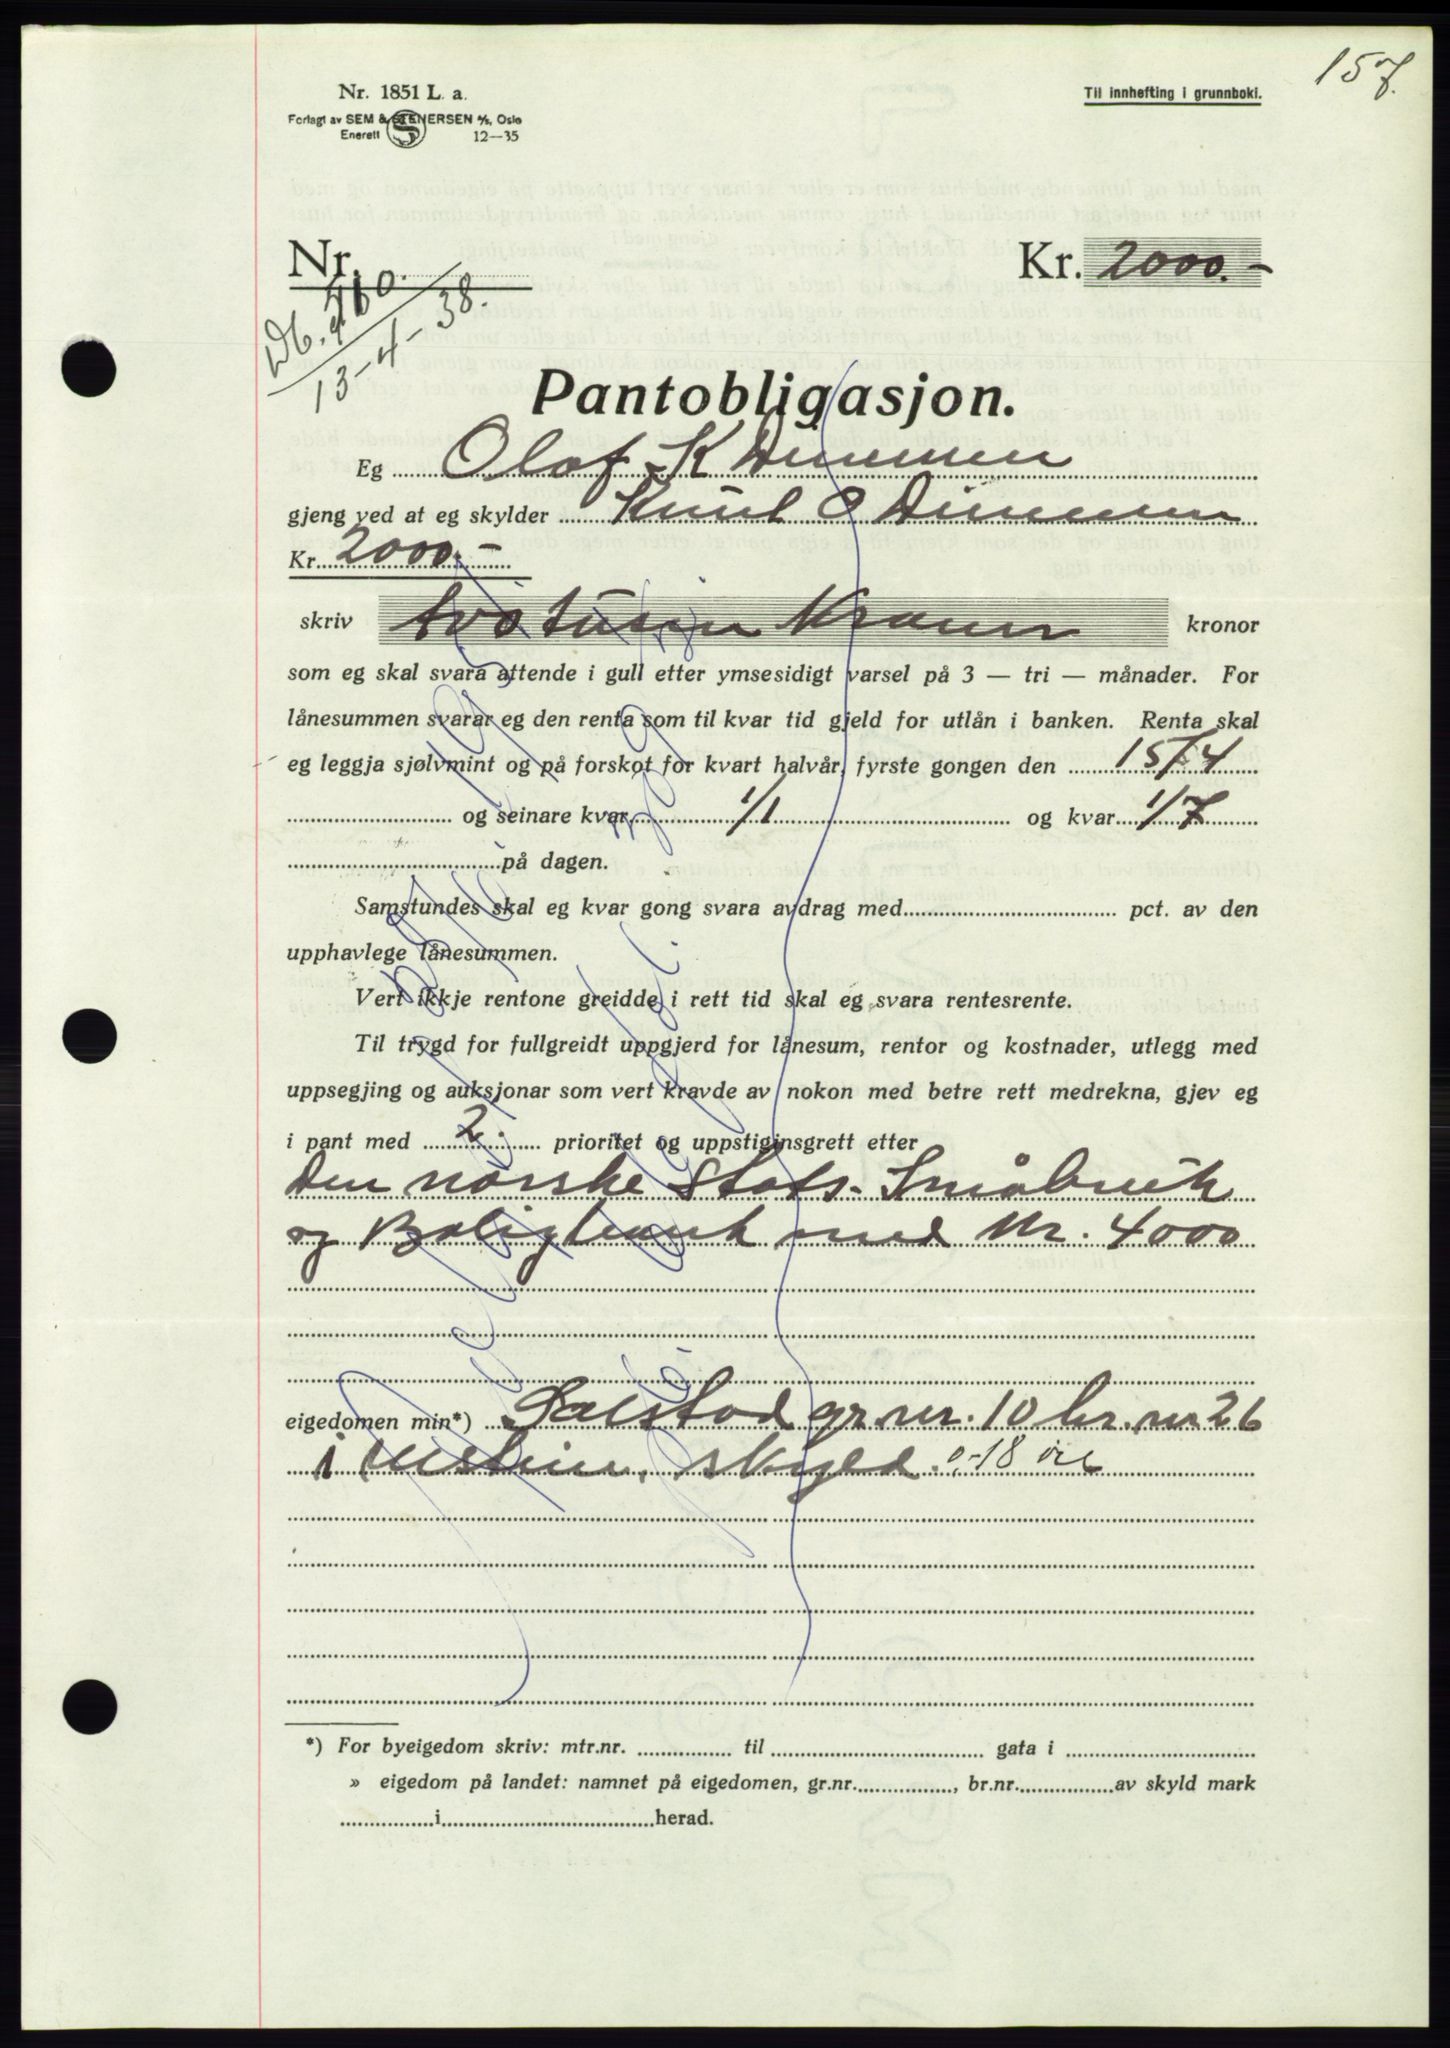 157.
Nr. 1851 L. a.
Til innhefting i grunnboki.
Forlagt av SEM & STENERSEN A/S, Oslo
Enerett 12—35
Nr.
Kr. 2000.-
Db. 760.
13-4-38.
Pantobligasjon.
Eg Olaf K Dimmen
gjeng ved at eg skylder Knut O Dimmen
Kr. 2000.-
skriv to tusin Kroner kronor
som eg skal svara attende i gull etter ymsesidigt varsel på 3 — tri — månader. For
lånesummen svarar eg den renta som til kvar tid gjeld for utlån i banken. Renta skal
eg leggja sjølvmint og på forskot for kvart halvår, fyrste gongen den 15/4
og seinare kvar 1/1 og kvar 1/7
på dagen.
Samstundes skal eg kvar gong svara avdrag med pct. av den
upphavlege lånesummen.
Vert ikkje rentone greidde i rett tid skal eg svara rentesrente.
Til trygd for fullgreidt uppgjerd for lånesum, rentor og kostnader, utlegg med
uppsegjing og auksjonar som vert kravde av nokon med betre rett medrekna, gjev eg
i pant med 2. prioritet og uppstiginsgrett etter
Den norske Stats- Småbruk
og Boligbank med Kr. 4000
eigedomen min*) Solstad gr.nr. 10 br.nr. 26
i skyld 0-18 øre
*) For byeigedom skriv: mtr.nr. til gata i
» eigedom på landet: namnet på eigedomen, gr.nr. , br.nr. av skyld mark
i herad.